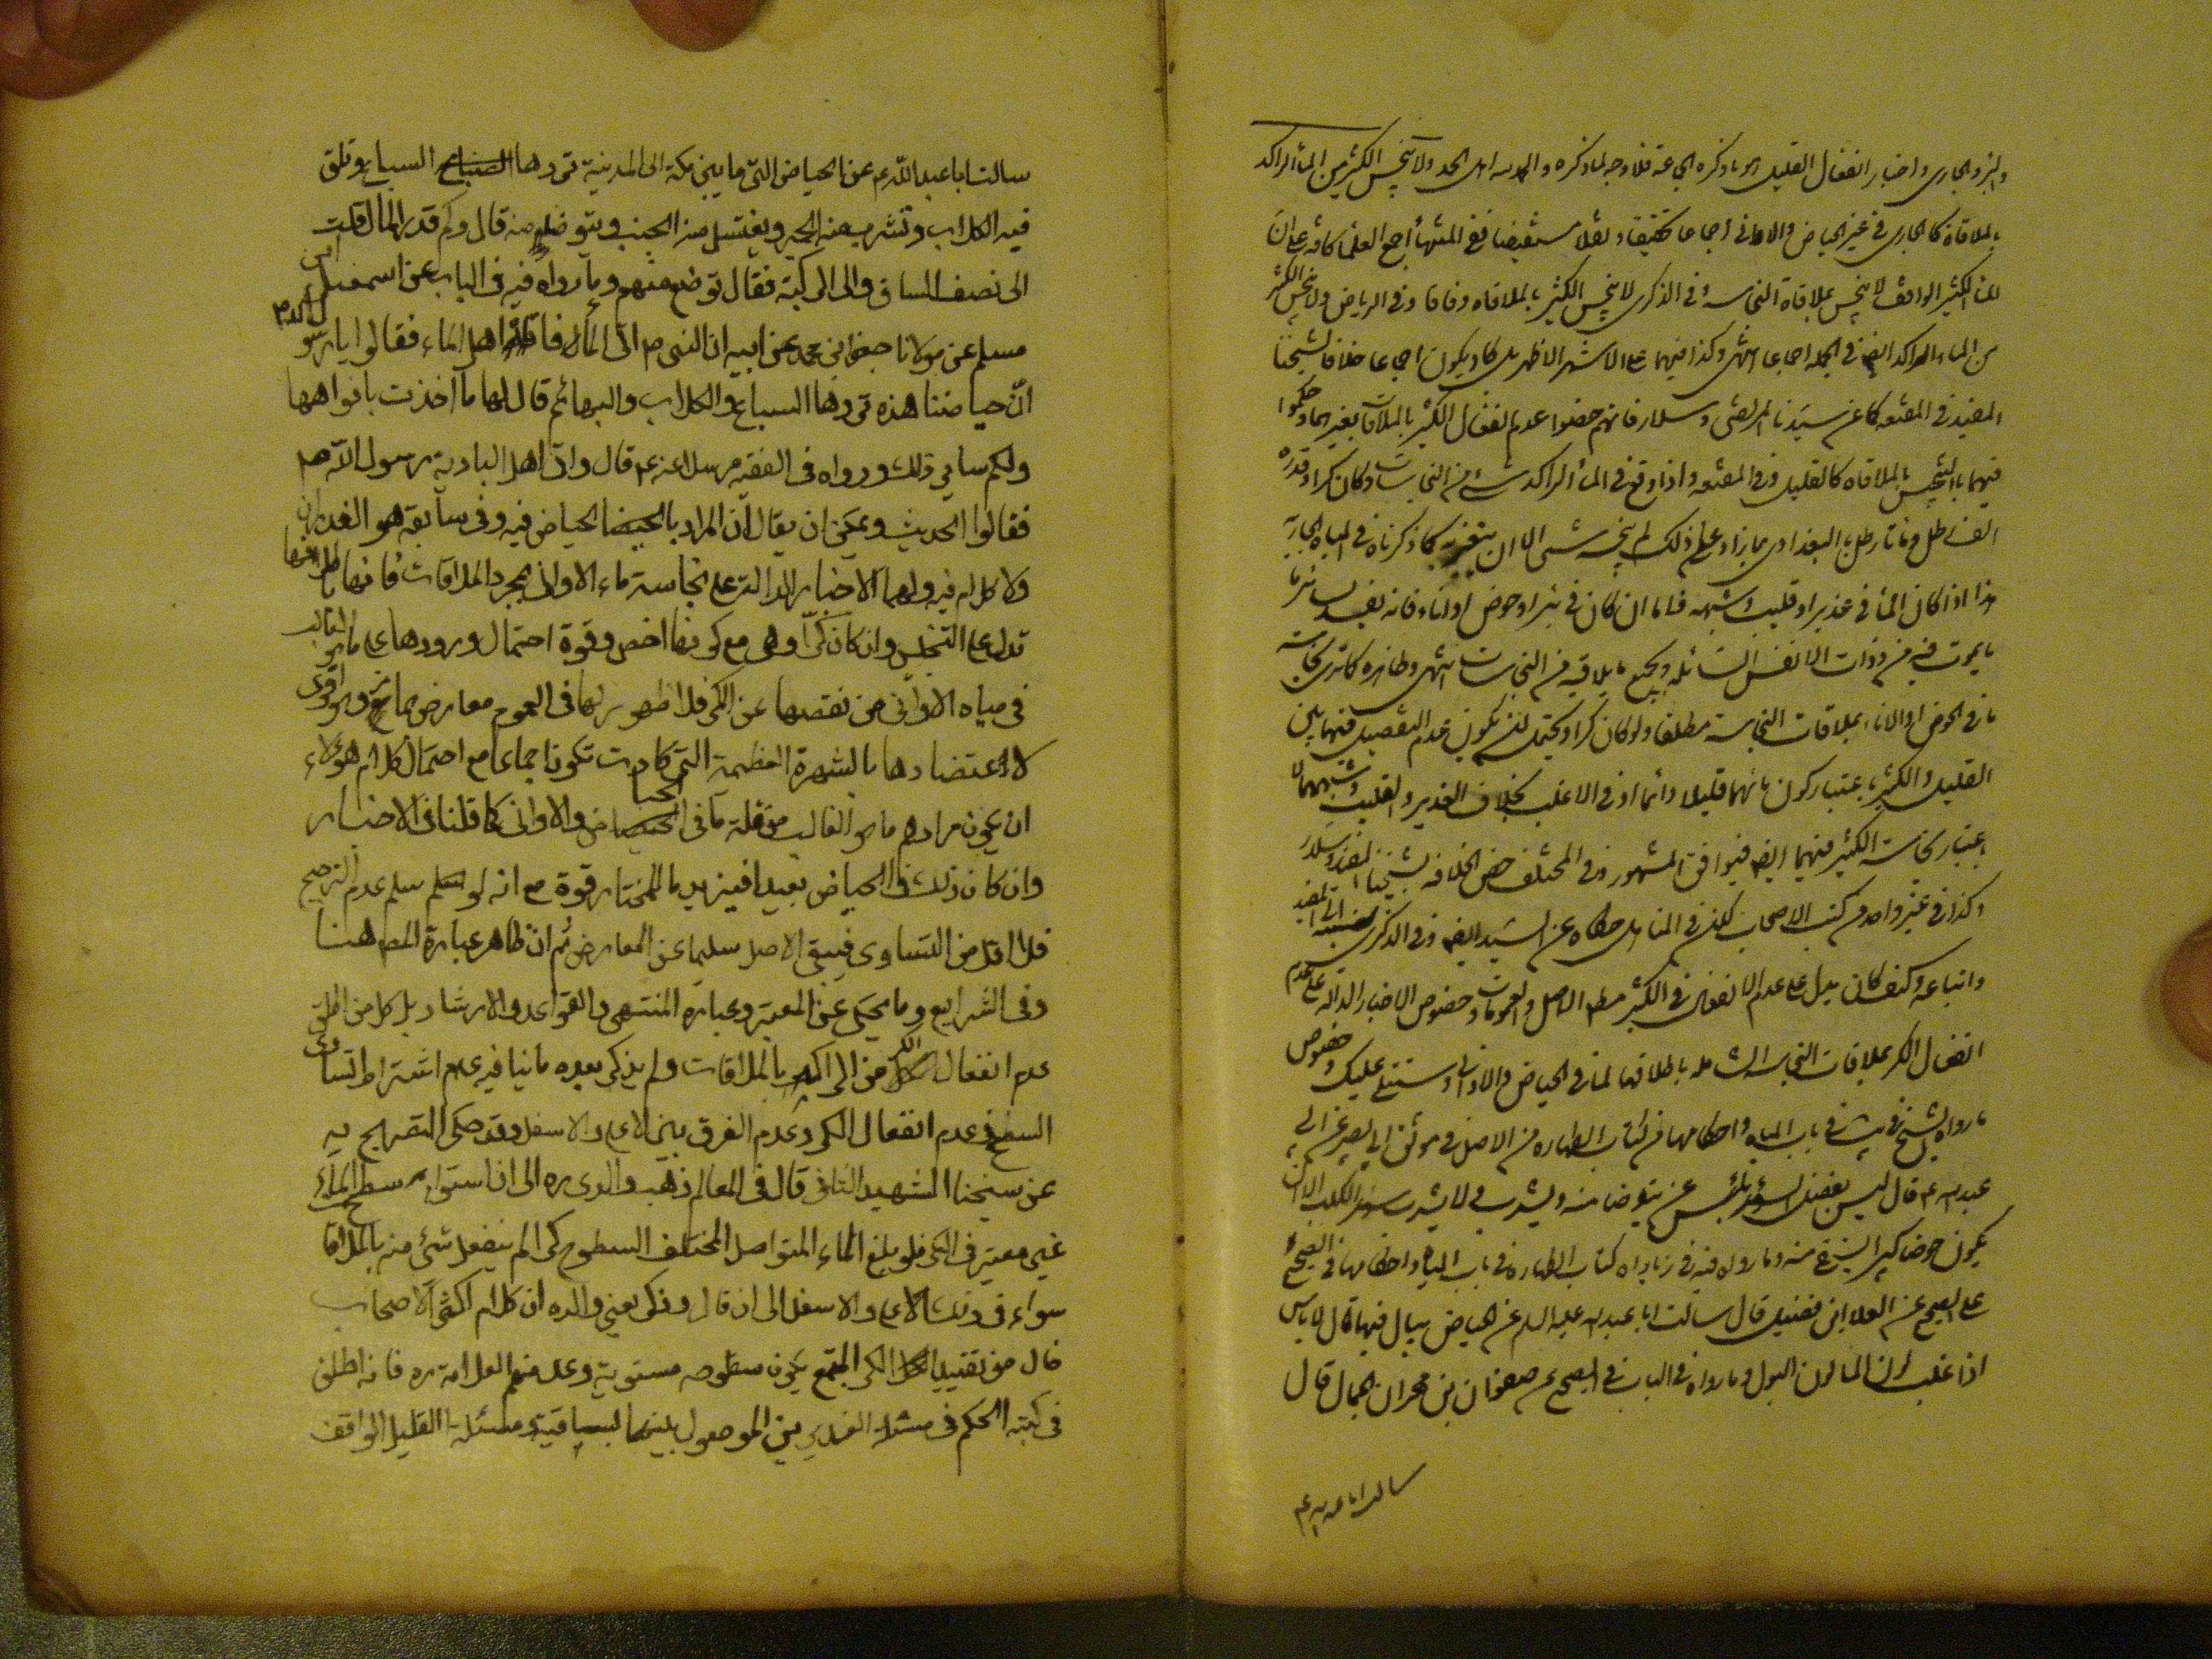 والبئر والجارى واخبار انفعال القليل اه ما ذكره الجماعة فلا وجه لما ذكره والحمد لله اهل الحمد ولا ينجس الكثير من الماء الراكد
بالملاقاة كالجارى فى غير الحياض والاوانى اجماعا تحقيقا ونقلا مستفيضا ففى المنتهى اجمع العلماء كافة على ان
الماء الكثير الواقف لا ينجس بملاقاة النجاسة وفى الذكرى لا ينجس الكثير بالملاقاة وفاقا وفى الرياض ولا ينجس الكثير
من الماء الراكد ايضا فى الجملة اجماعا انتهى وكذا فيهما على الاشهر الاظهر بل كاد يكون اجماعا خلافا لشيخنا
المفيد فى المقنعه كما عن سيدنا المرتضى وسلار فانهم خصوا عدم انفعال الكثير بالملاقات بغيرهما وحكموا
فيهما بالتنجيس بالملاقاة كالقليل وفى المقنعه واذا وقع فى الماء الراكد شئ من النجاسات وكان كرا وقدره
الف رطل ومائتا رطل بالبغدادى وما زاد على ذلك لم ينجسه شئ الا ان يتغير به كما ذكرناه فى المياه الجارية
هذا اذا كان الماء فى غدير او قليب وشبهه فاما ان كان فى بئر او حوض او اناء فانه يفسد بسائر ما
يموت فيه من ذوات الانفس السائلة وبجميع ما يلاقيه من النجاسات انتهى وظاهره كما ترى نجاسة
ما فى الحوض او الاناء بملاقات النجاسة مطلقا ولو كان كرا ويحتمل ان يكون عدم التفصيل فيهما بين
القليل والكثير باعتبار كون مائهما قليلا دائما او فى الاغلب بخلاف الغدير والقليب وشبههما لا
باعتبار نجاسة الكثير فيهما ايضا فيوافق المشهور وفى المختلف خص الخلاف بشيخنا المفيد وسلار
وكذا فى غير واحد من كتب الاصحاب لكن فى المناهل حكاه عن السيد ايضا وفى الذكرى نسبه الى المفيد
واتباعه وكيف كان يدل على عدم الانفعال فى الكثير مطلقا الاصل والعمومات وخصوص الاخبار الدالة على عدم
انفعال الكر بملاقات النجاسة الشاملة باطلاقها لما فى الحياض والاوانى وستتلى عليك وخصوص
ما رواه الشيخ فى يب فى باب المياه واحكامها من كتاب الطهارة من الاصل فى موثق ابى بصير عن ابى
عبد الله ع قال ليس بفضل السنور باس ان يتوضا منه ويشرب ولا يشرب سؤر الكلب الا ان
يكون حوضا كبيرا يستقى منه وما رواه فيه فى زيادات كتاب الطهارة فى باب المياه واحكامها فى الصحيح
على الصحيح عن العلا ابن فضيل قال سالت ابا عبد الله عليه السلم عن الحياض يبال فيها قال لا باس
اذا غلب لون الماء لون البول وما رواه فى الباب فى الصحيح عن صفوان بن مهران الجمال قال
سالت ابا عبد الله ع
سالت ابا عبد اللّه ع عن الحياض التى ما بين مكة الى المدينة تردها السباع وتلق
فيه الكلاب وتشرب منه الحمير ويغتسل منه الجنب ويتوضا منه قال وكم قدر الماء قلت
الى نصف الساق والى الركبة فقال توضا منه وما رواه فيه فى الباب عن اسمعيل ابن
مسلم عن مولانا جعفر ابن محمد عن ابيه ان النبى ص اتى الماء فاتاه اهل الماء فقالوا يا رسول الله ص
انّ حياضنا هذه تردها السباع والكلاب والبهائم قال لها ما اخذت بافواهها
ولكم ساير ذلك ورواه فى الفقيه مرسلا عنه ع قال واتى اهل البادية رسول اللّه ص
فقالوا الحديث ويمكن ان يقال ان المراد بالحياض فيه وفى سابقه هو الغدران
ولا كلام فيه ولهما الاخبار الدالة على نجاسة ماء الاوانى بمجرد الملاقات فانها باطلاقها
تدل على التنجس وان كان كرّا وهى مع كونها اخص وقوة احتمال ورودها على ما هو الغالب
فى مياه الاوانى من نقصها عن الكر فلا ظهور لها فى العموم معارض بما مر وهو اقوى
لاعتضادها بالشهرة العظيمة التى كادت تكون اجماعا مع احتمال كلام هؤلاء
ان يكون مرادهم ما هو الغالب من قلة ما فى الحياض والاوانى كما قلنا فى الاخبار
وان كان ذلك فى الحياض بعيدا فيزيد ما للمختار قوة مع انه لو سلم سلم عدم الترجيح
فلا اقل من التساوى فيبقى الاصل سليما عن المعارض ثم انّ ظاهر عبارة المص هنا
وفى الشرايع وما يحكى عن المعتبر وعبارة المنتهى والقواعد والارشاد بل كل من اطلق
عدم انفعال الكر من الراكد بالملاقات ولم يذكر بعده ما ينافيه عدم اشتراط تساوى
السطح فى عدم انفعال الكر وعدم الفرق بين الاعلى والاسفل وقد حكى التصريح به
عن شيخنا الشهيد الثانى قال فى المعالم ذهب والدى ره الى ان استواء سطح الماء
غير معتبر فى الكر فلو بلغ الماء المتواصل المختلف السطوح كرا لم ينفعل شئ منه بالملاقاة
سواء فى ذلك الاعلى والاسفل الى ان قال وذكر يعنى والده ان كلام اكثر الاصحاب
خال من تقييد الكر المجتمع بكون سطوحه مستوية وعد منهم العلامة ره فانه اطلق
فى كتبه الحكم فى مسئلة الغديرين الموصول بينهما بساقية ومسئلة القليل الواقف